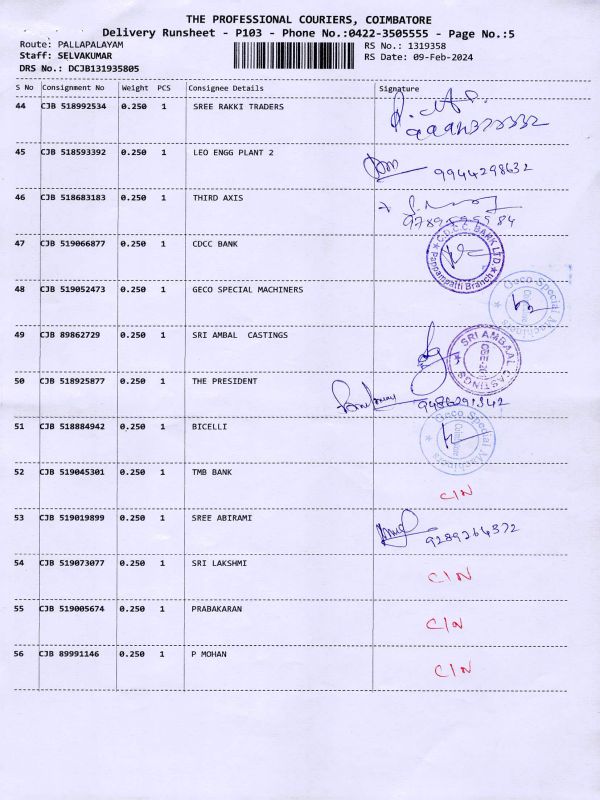 THE PROFESSIONAL COURIERS, COIMBATORE
Delivery Runsheet - P103 - Phone No.:0422-3505555 - Page No.:5
Route: PALLAPALAYAM
RS No.: 1319358
Staff: SELVAKUMAR
RS Date: 09-Feb-2024
DRS No.: DCJB131935805
S No Consignment No Weight PCS Consignee Details Signature
44 CJB 518992534 0.250 1 SREE RAKKI TRADERS
45 CJB 518593392 0.250 1 LEO ENGG PLANT 2
9944298632
46 CJB 518683183 0.250 1 THIRD AXIS
47 CJB 519066877 0.250 1 CDCC BANK
C.D.C.C. BANK LTD.
Pappampatti Branch
48 CJB 519052473 0.250 1 GECO SPECIAL MACHINERS
Geco Special Machiners
Coimbatore
49 CJB 89862729 0.250 1 SRI AMBAL CASTINGS
SRI AMBAAL CASTINGS
50 CJB 518925877 0.250 1 THE PRESIDENT
9486091342
51 CJB 518884942 0.250 1 BICELLI
Geco Special Machiners
Coimbatore
52 CJB 519045301 0.250 1 TMB BANK
C/N
53 CJB 519019899 0.250 1 SREE ABIRAMI
9289264372
54 CJB 519073077 0.250 1 SRI LAKSHMI
C/N
55 CJB 519005674 0.250 1 PRABAKARAN
C/N
56 CJB 89991146 0.250 1 P MOHAN
C/N